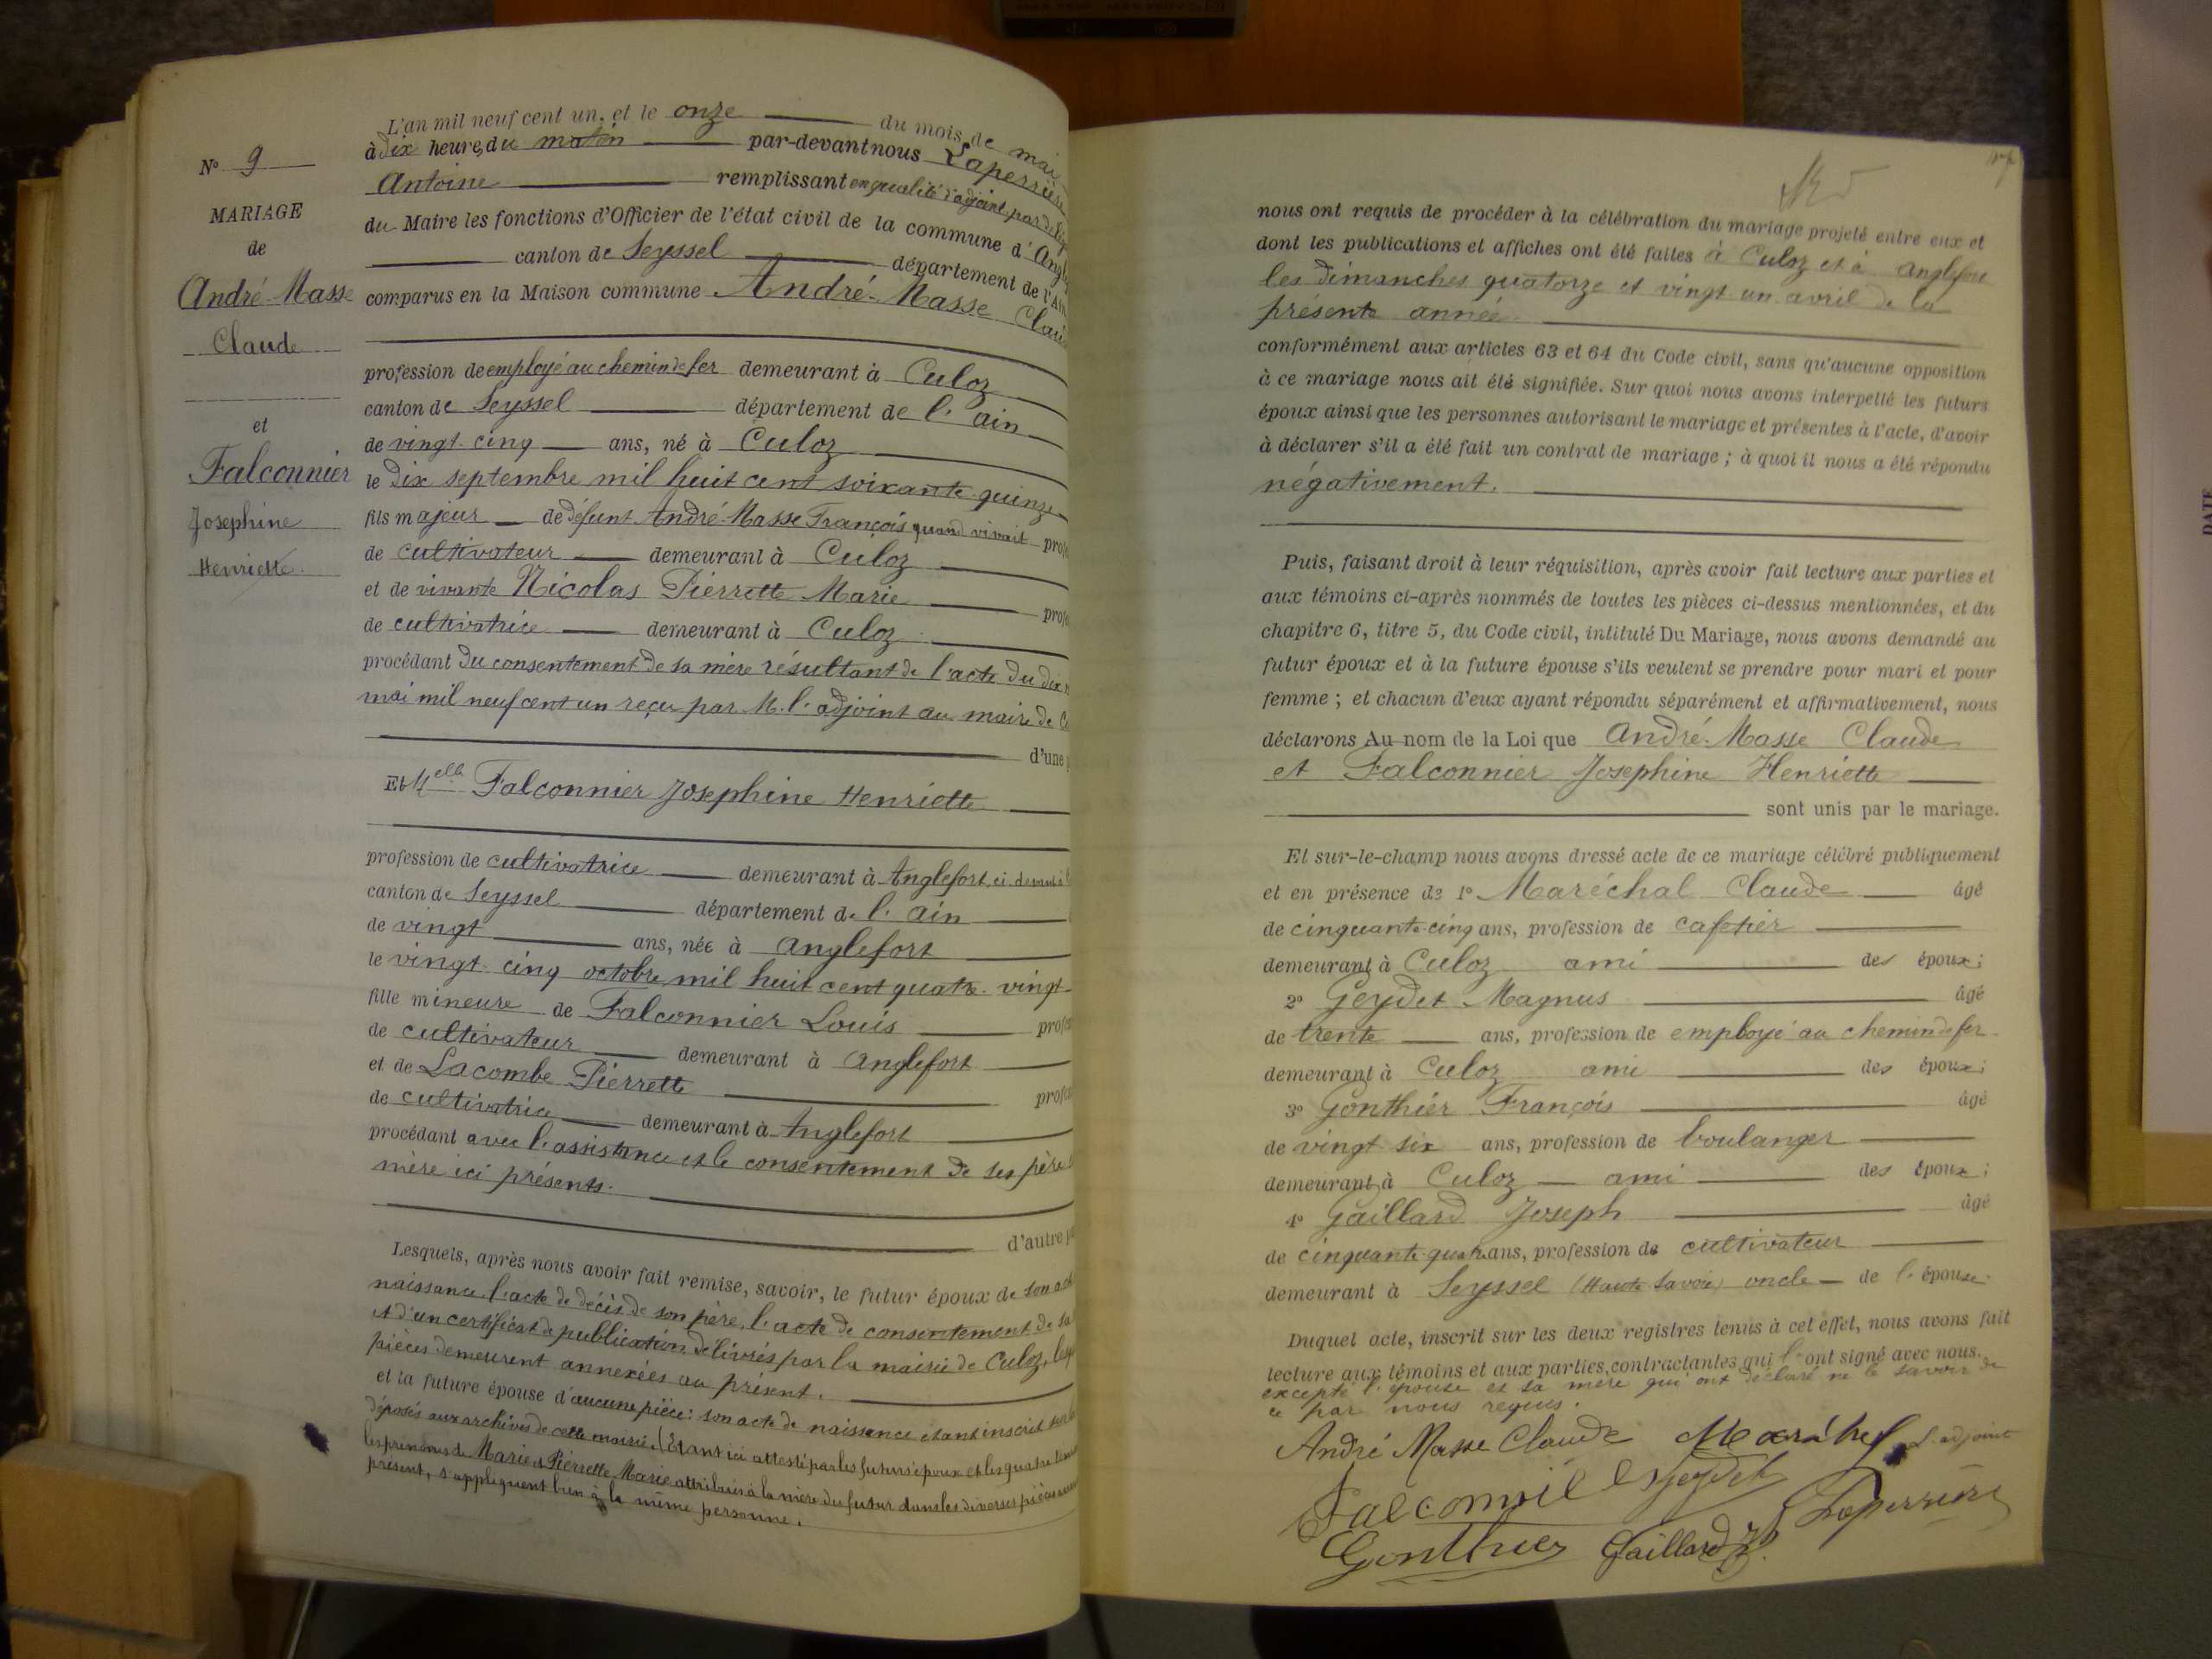 N° 9
MARIAGE
de
André-Masse
Claude
et
Falconnier
Josephine
Henriette
L'an mil neuf cent un, et le onze du mois de mai
à dix heures du matin par-devant nous Laperrière
Antoine remplissant en qualité d'adjoint par
du Maire les fonctions d'Officier de l'état civil de la commune d'
canton de Seyssel département de l'Ain
comparus en la Maison commune André-Masse
profession de employé au chemin de fer demeurant à Culoz
canton de Seyssel département de l'ain
de vingt-cinq ans, né à Culoz
le dix septembre mil huit cent soixante quinze
fils majeur de défunt André-Masse François quand vivait
de cultivateur demeurant à Culoz
et de vivante Nicolas Pierrette Marie
de cultivatrice demeurant à Culoz
procédant du consentement de sa mère résultant de l'acte du dix
mai mil neuf cent un reçu par M. l'adjoint au maire de
d'une
Et Melle Falconnier Josephine Henriette
profession de cultivatrice demeurant à Anglefort, ci-devant à
canton de Seyssel département de l'ain
de vingt ans, née à Anglefort
le vingt-cinq octobre mil huit cent quatre-vingt
fille mineure de Falconnier Louis
de cultivateur demeurant à Anglefort
et de Lacombe Pierrette
de cultivatrice demeurant à Anglefort
procédant avec l'assistance et le consentement de ses père
mère ici présents.
d'autre
Lesquels, après nous avoir fait remise, savoir, le futur époux de son
naissance, l'acte de décès de son père, l'acte de consentement de sa
et d'un certificat de publication délivrés par la mairie de Culoz,
pièces demeurent annexées au présent.
et la future épouse d'aucune pièce: son acte de naissance étant inscrit
déposés aux archives de cette mairie. (Etant ici attesté par les futurs époux et les quatre
les prénoms de Marie et Pierrette Marie attribués à la mère du futur dans les diverses pièces
présent, s'appliquent bien à la même personne.
nous ont requis de procéder à la célébration du mariage projeté entre eux et
dont les publications et affiches ont été faites à Culoz et à Anglefort
les dimanches quatorze et vingt un avril de la
présente année.
conformément aux articles 63 et 64 du Code civil, sans qu'aucune opposition
à ce mariage nous ait été signifiée. Sur quoi nous avons interpellé les futurs
époux ainsi que les personnes autorisant le mariage et présentes à l'acte, d'avoir
à déclarer s'il a été fait un contrat de mariage ; à quoi il nous a été répondu
négativement.
Puis, faisant droit à leur réquisition, après avoir fait lecture aux parties et
aux témoins ci-après nommés de toutes les pièces ci-dessus mentionnées, et du
chapitre 6, titre 5, du Code civil, intitulé Du Mariage, nous avons demandé au
futur époux et à la future épouse s'ils veulent se prendre pour mari et pour
femme ; et chacun d'eux ayant répondu séparément et affirmativement, nous
déclarons Au nom de la Loi que André-Masse Claude
et Falconnier Josephine Henriette
sont unis par le mariage.
Et sur-le-champ nous avons dressé acte de ce mariage célébré publiquement
et en présence de 1° Maréchal Claude âgé
de cinquante-cinq ans, profession de cafetier
demeurant à Culoz ami des époux;
2° Geydet Magnus âgé
de trente ans, profession de employé au chemin de fer
demeurant à Culoz ami des époux;
3° Gonthier François âgé
de vingt six ans, profession de boulanger
demeurant à Culoz ami des époux;
4° Gaillard Joseph âgé
de cinquante quatre ans, profession de cultivateur
demeurant à Seyssel (Haute Savoie) oncle de l'épouse.
Duquel acte, inscrit sur les deux registres tenus à cet effet, nous avons fait
lecture aux témoins et aux parties contractantes qui l'ont signé avec nous.
excepté l'épouse et sa mère qui ont déclaré ne le savoir de
ce par nous requis.
André Masse Claude Maréchal L'adjoint
Geydet
Laperrière
Gonthier Gaillard
DATE